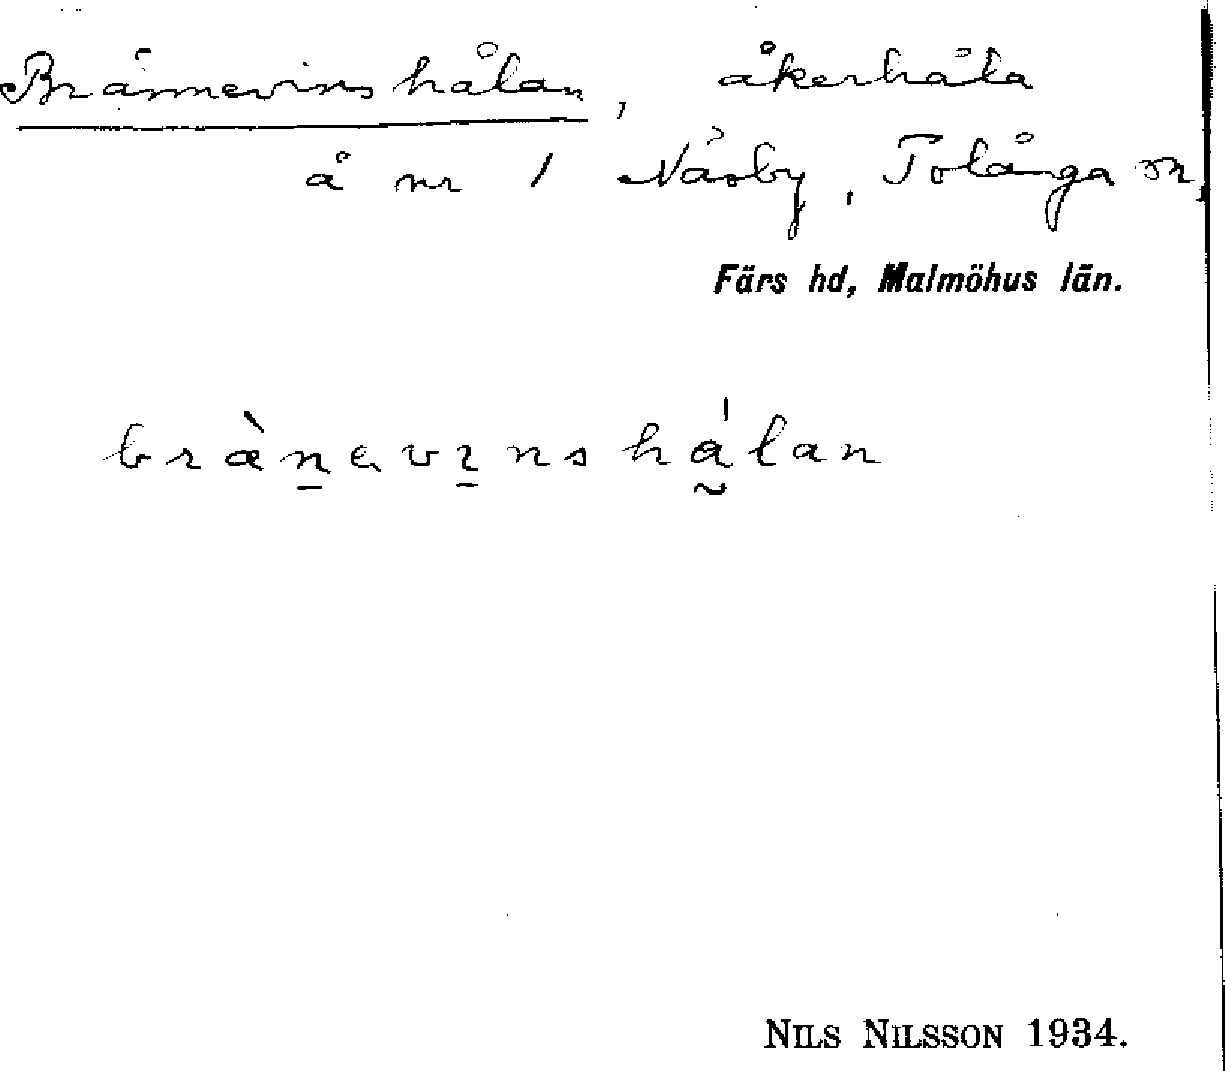 Brännevinshålan, åkerhåla
å nr 1 Näsby, Tolånga sn,
Färs hd, Malmöhus län.
brànavınshá̰lan
NILS NILSSON 1934.